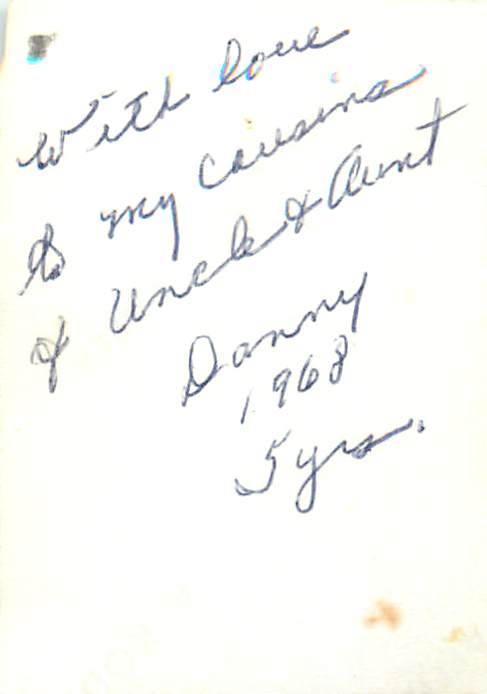 With love
to my cousins
& Uncle & Aunt
Danny
1968
5 yrs.